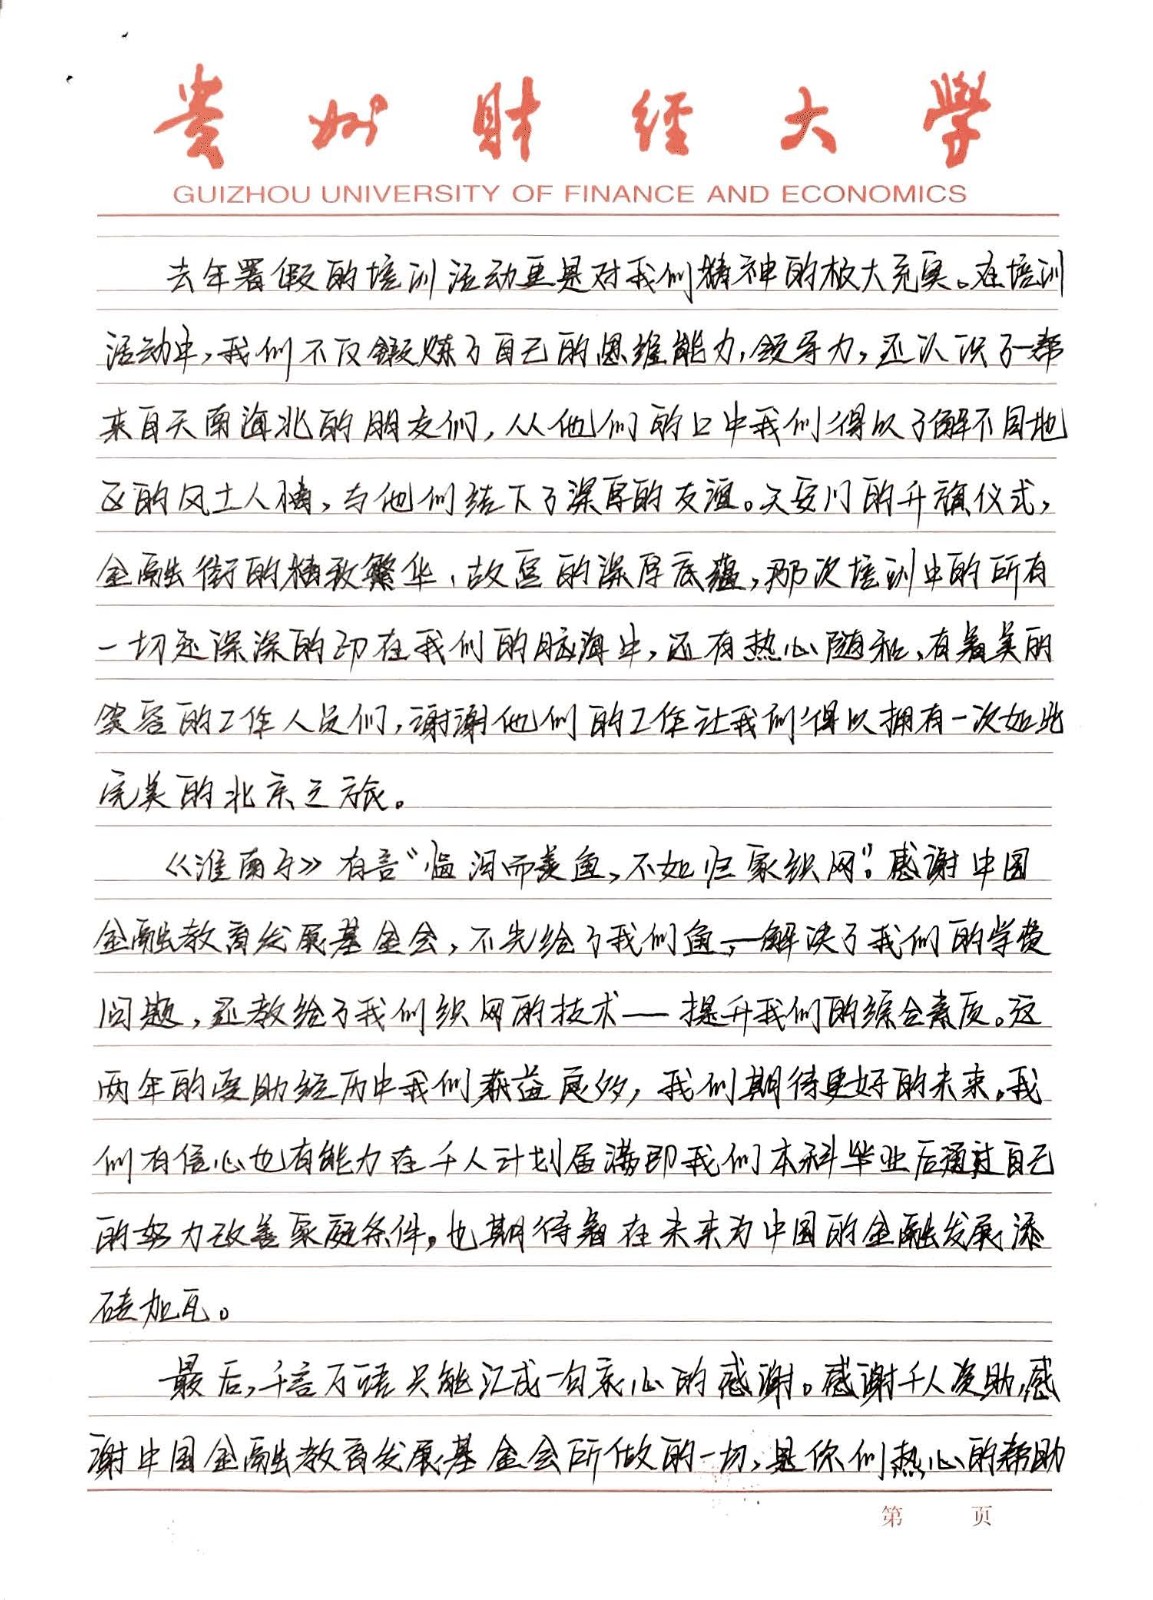 贵州财经大学
GUIZHOU UNIVERSITY OF FINANCE AND ECONOMICS
去年暑假的培训活动更是对我们精神的极大充实。在培训
活动中,我们不仅锻炼了自己的思维能力,领导力,还认识了一帮
来自天南海北的朋友们,从他们的口中我们得以了解不同地
区的风土人情,与他们结下了深厚的友谊。天安门的升旗仪式,
金融街的精致繁华、故宫的深厚底蕴,那次培训中的所有
一切还深深的印在我们的脑海中,还有热心随和、有着美丽
笑容的工作人员们,谢谢他们的工作让我们得以拥有一次如此
完美的北京之旅。
《淮南子》有言“临河而羡鱼,不如归家织网”。感谢中国
金融教育发展基金会,不光给了我们鱼,—解决了我们的学费
问题,还教给了我们织网的技术——提升我们的综合素质。这
两年的受助经历中我们获益良多,我们期待更好的未来。我
们有信心也有能力在千人计划届满即我们本科毕业后通过自己
的努力改善家庭条件,也期待着在未来为中国的金融发展添
砖加瓦。
最后,千言万语只能汇成一句衷心的感谢。感谢千人资助,感
谢中国金融教育发展基金会所做的一切,是你们热心的帮助
第 页